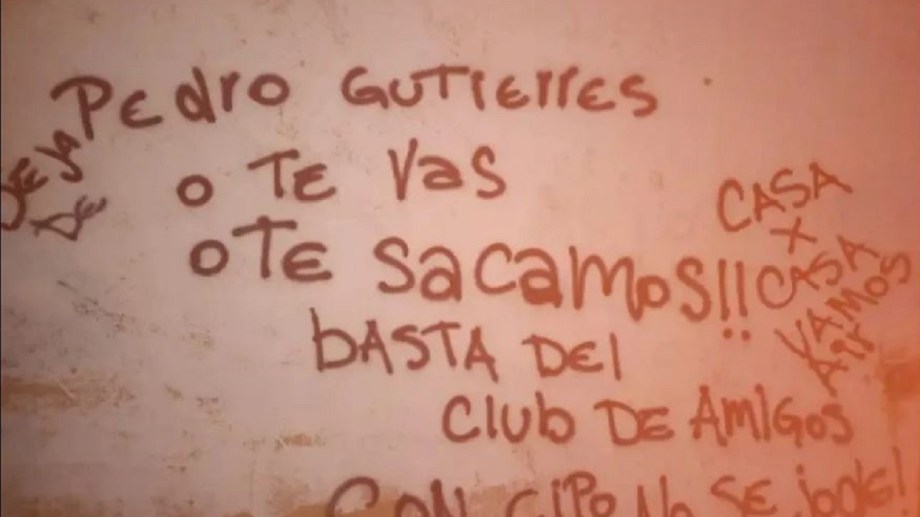 Pedro GUTIErrES
O TE VaS
O TE SaCamoS!!
bASTA DEl
Club DE AmIGOS
CON CIPO No SE jode!
DEJA
DE
CASA
X
CASA
VAMOS
A ir